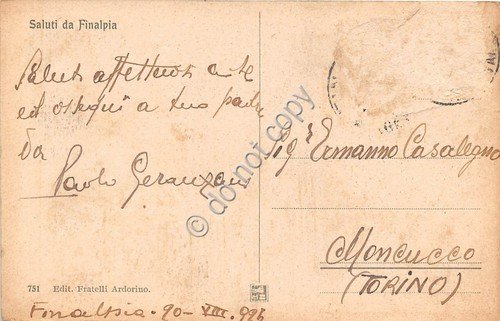 Saluti da Finalpia
Saluti affettuosi a te
ed ossequi a tuo padre
Da
Paolo
Sigr Ermanno Casalegno
Moncucco
(TORINO)
751 Edit. Fratelli Ardorino.
Finalpia - VIII
do-not copy